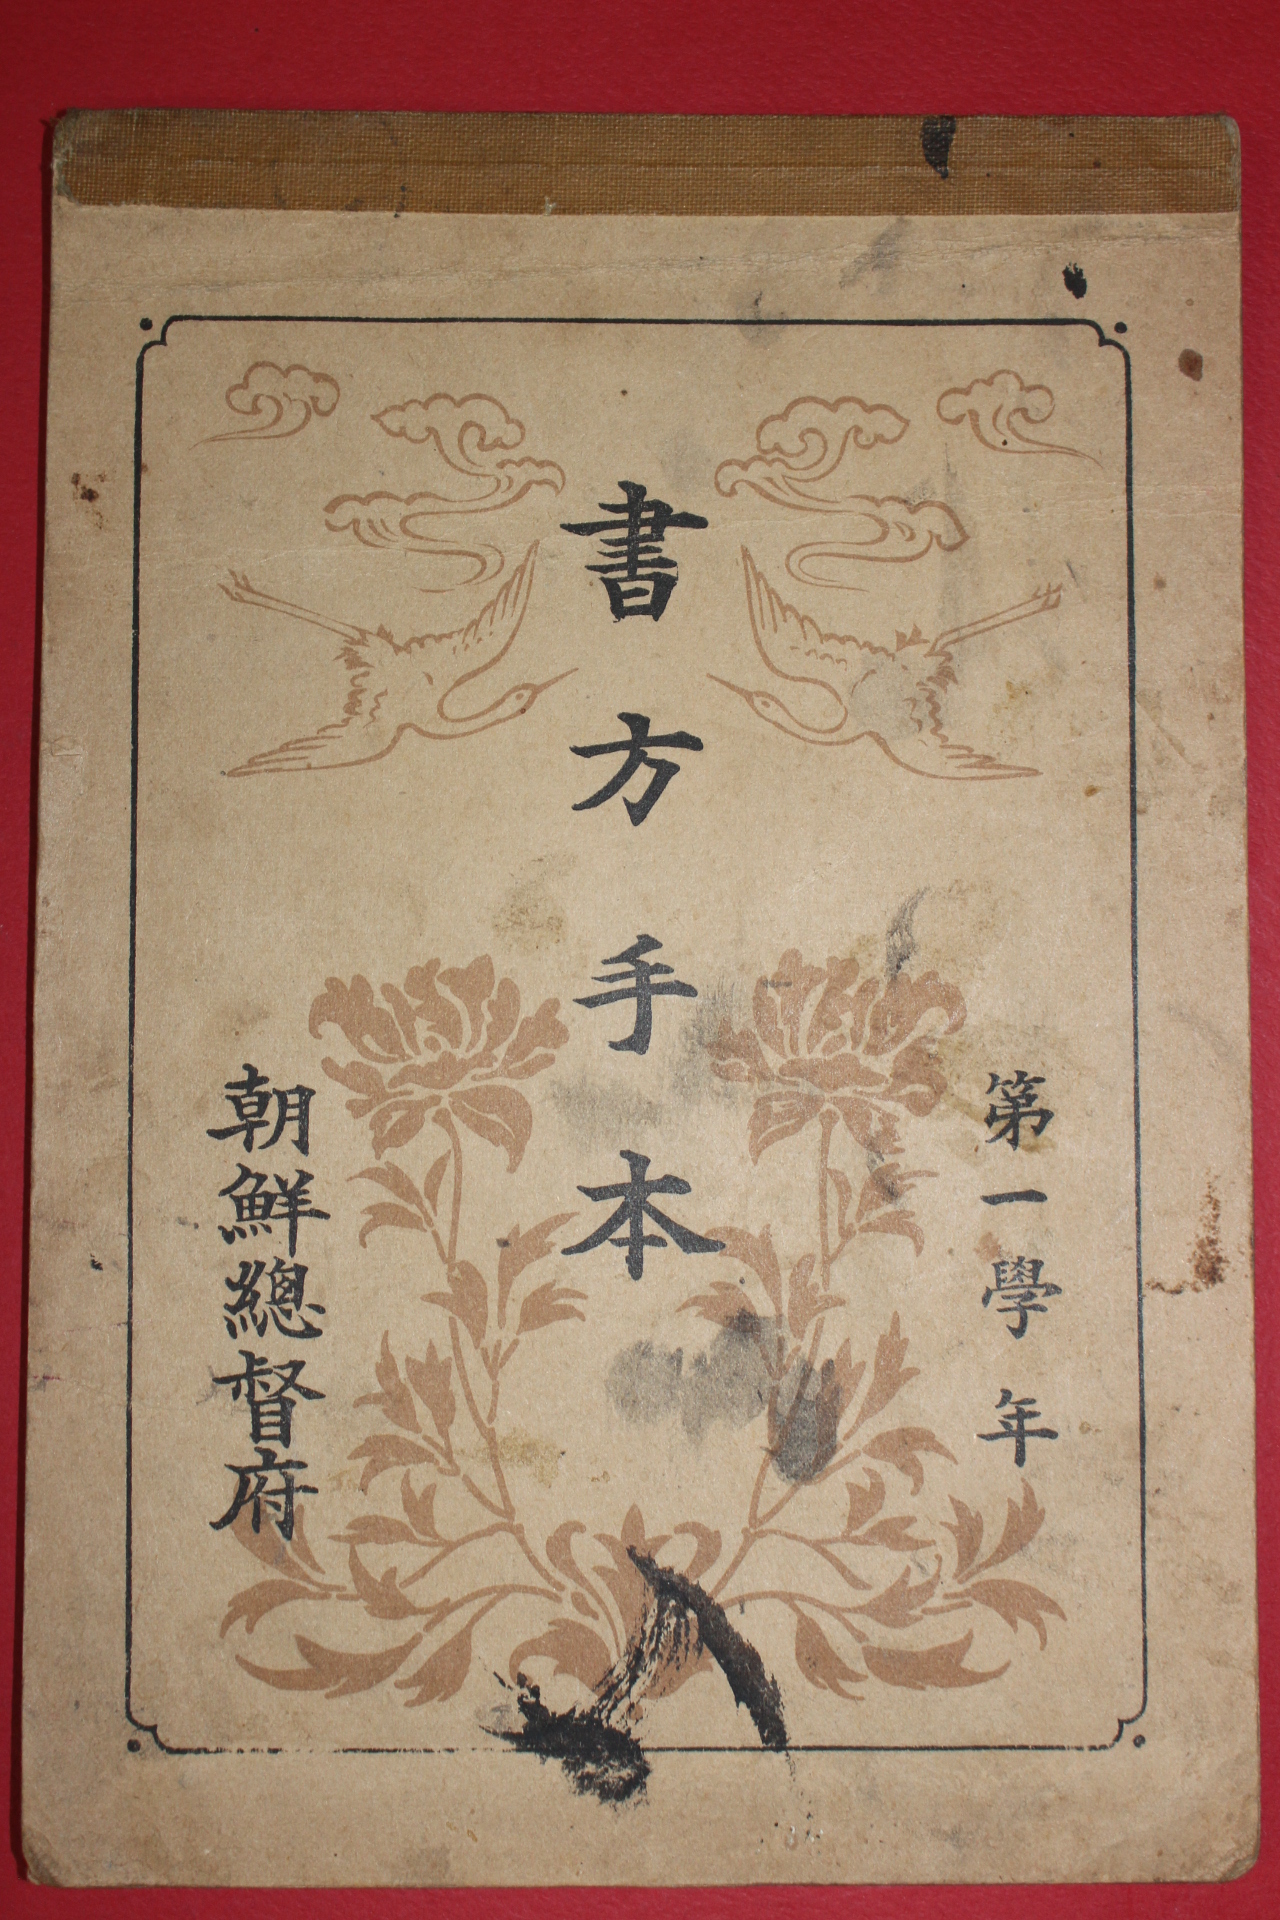 第一學年
書方手本
朝鮮總督府